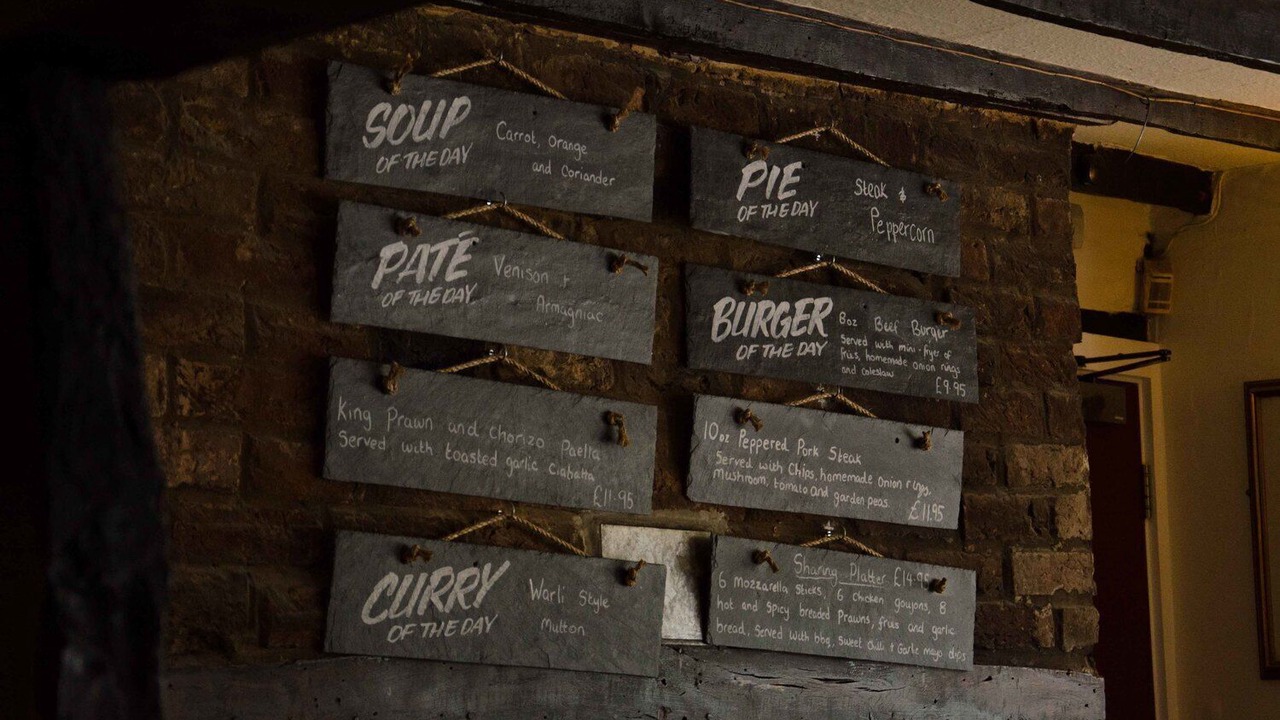 SOUP
OF THE DAY
Carrot, Orange
and Coriander
PATÉ
OF THE DAY
Venison +
Armagniac
King Prawn and Chorizo Paella
Served with toasted garlic Ciabatta
£11.95
CURRY
OF THE DAY
Warli Style
Mutton
PIE
OF THE DAY
Steak &
Peppercorn
BURGER
OF THE DAY
8oz Beef Burger
Served with mini-fryer of
fries, homemade onion rings
and coleslaw
£9.95
10oz Peppered Pork Steak
Served with Chips, homemade onion rings,
Mushroom, tomato and garden peas.
£11.95
Sharing Platter £14.95
6 Mozzarella Sticks, 6 Chicken goujons, 8
hot and Spicy breaded Prawns, fries and garlic
bread, Served with bbq, Sweet Chilli + Garlic mayo dips